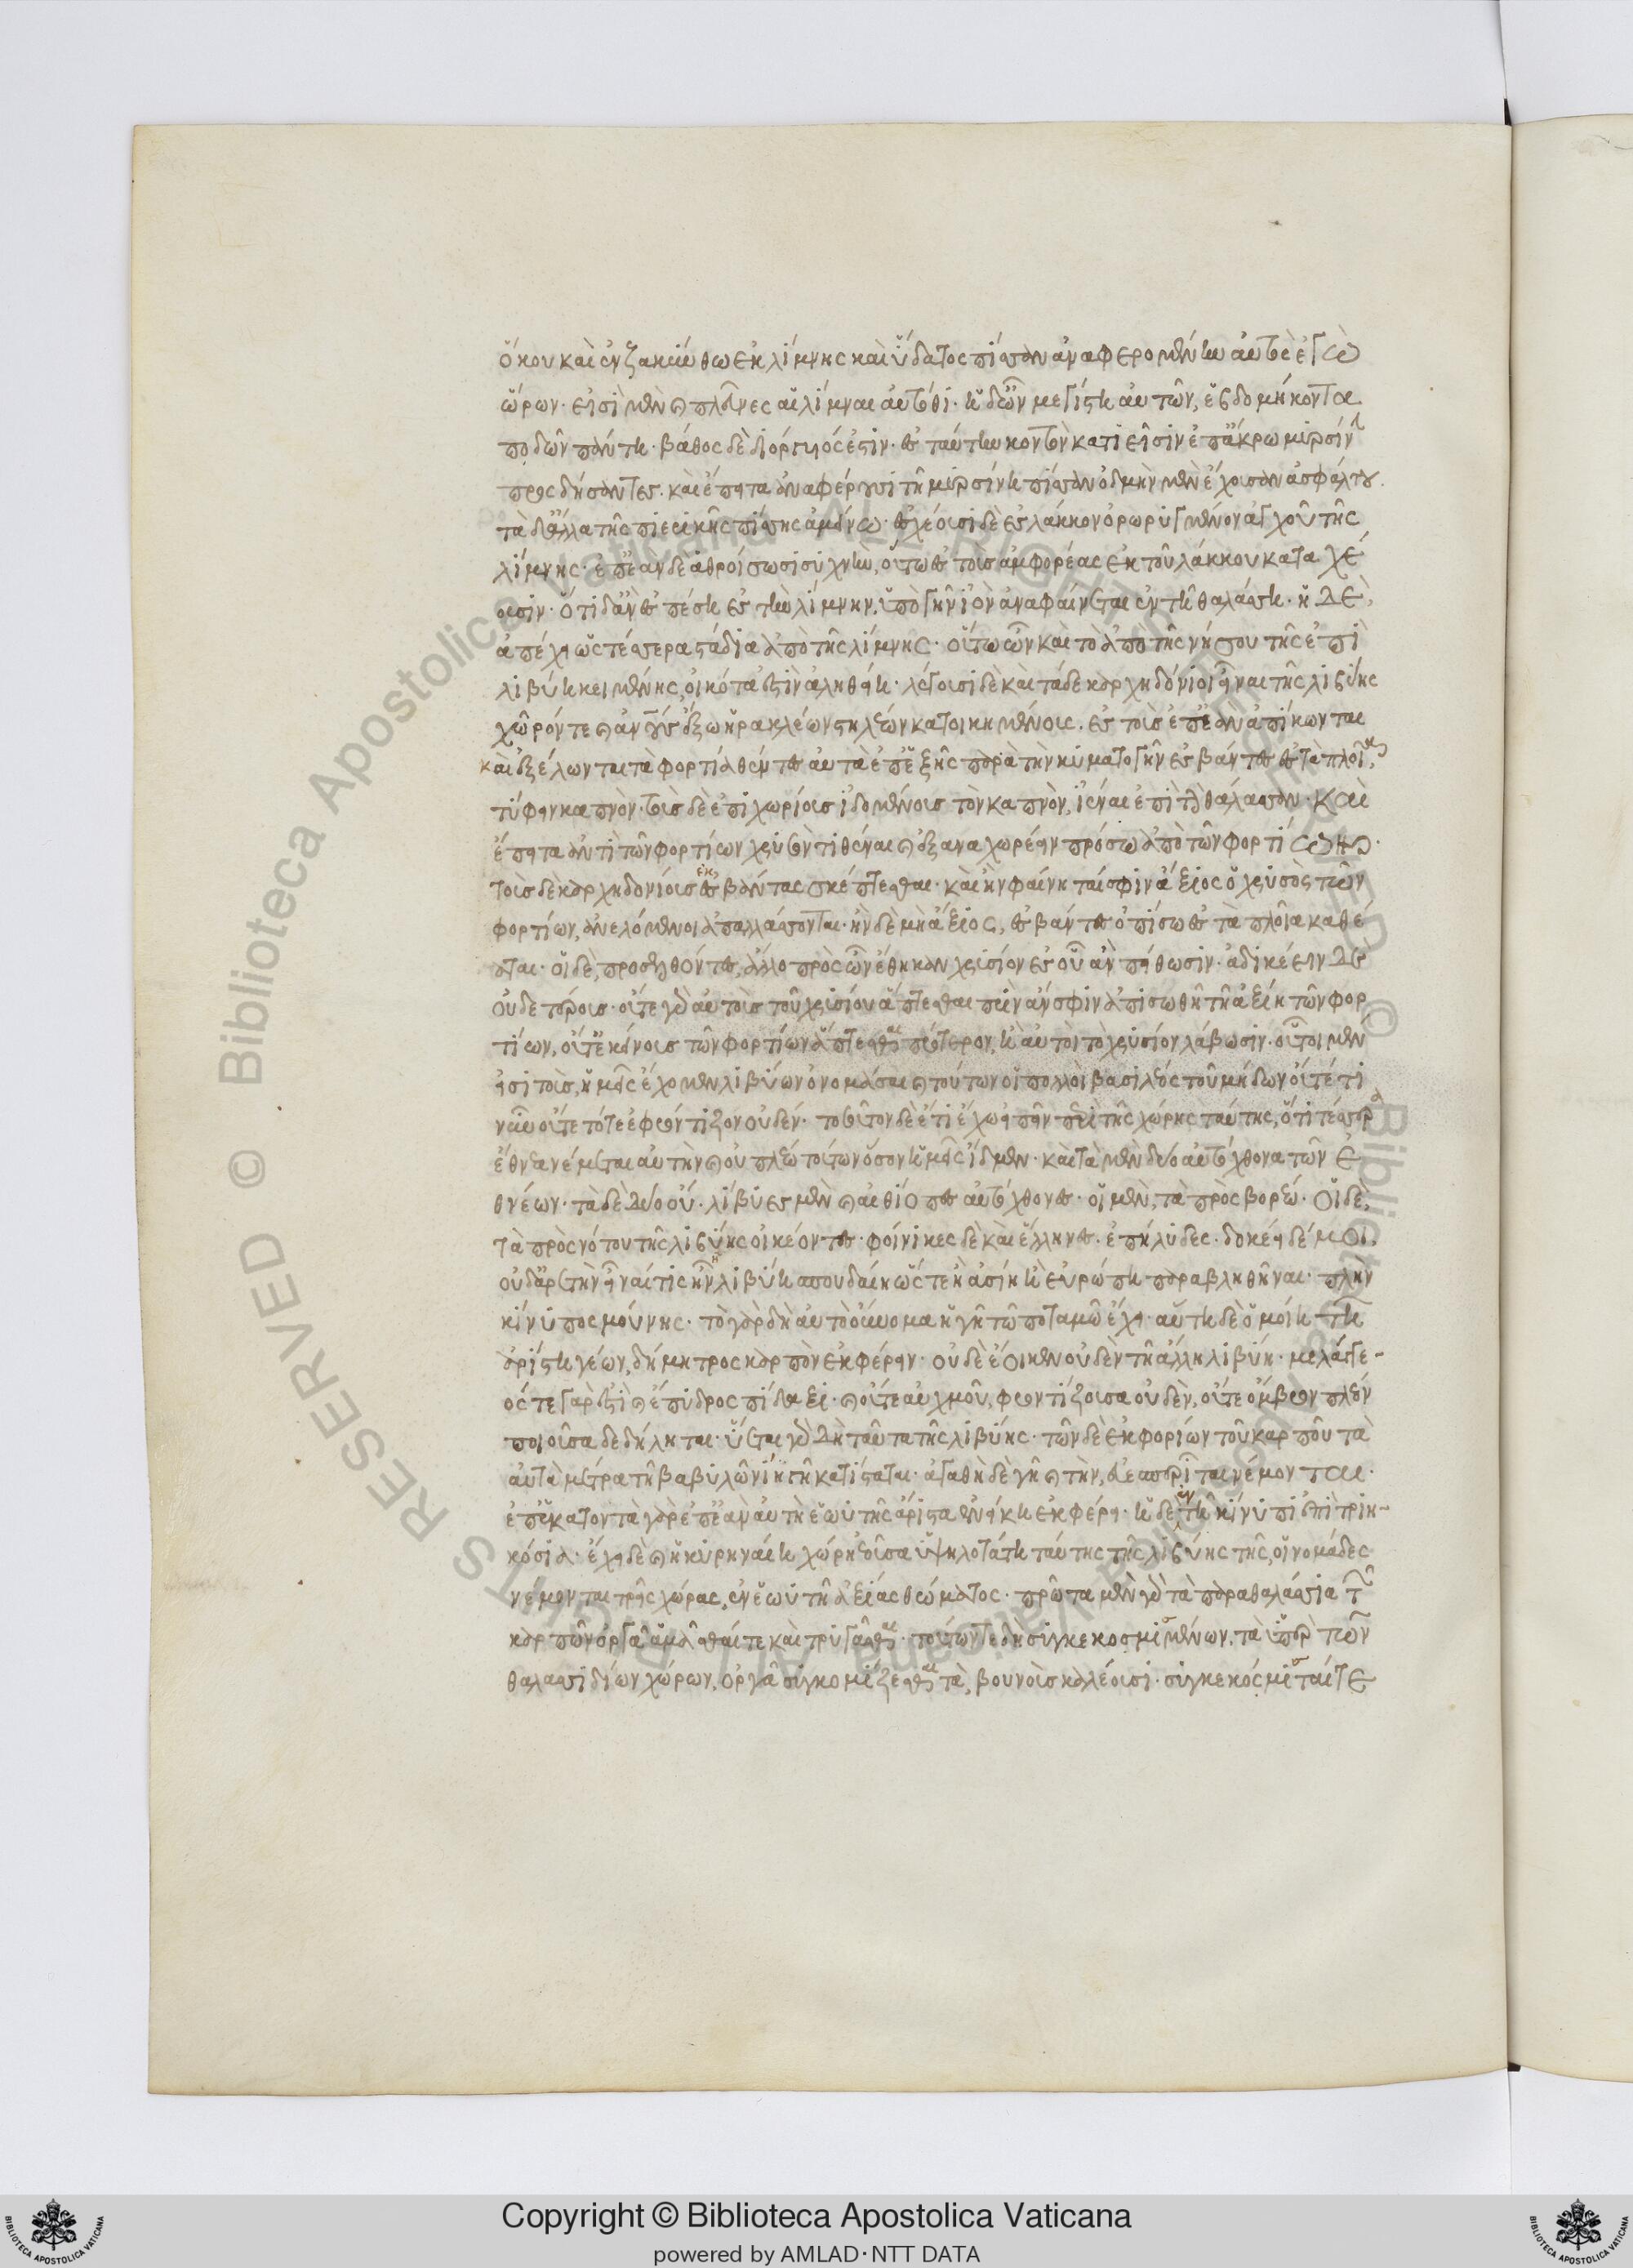 ὅκου καὶ ἐν ζακύνθω ἐκ λίμνης καὶ ὕδατος πίσσαν ἀναφερομένην αὐτὸς ἐγὼ
ὥρων· εἰσὶ μὲν καὶ πλεῦνες αἱ λίμναι αὐτόθι· ἡ δ' ὦν μεγίστη αὐτῶν, ἑβδομήκοντα
ποδῶν πάντη· βάθος δὲ διόργυιός ἐστιν· ἐς ταύτην κοντὸν κατιεῖσιν ἐπ' ἄκρω μυρσίνην
προσδήσαντες· καὶ ἔπειτα ἀναφέρουσι τῆ μυρσίνη πίσσαν ὀδμὴν μὲν ἔχουσαν ἀσφάλτου·
τὰ δ' ἄλλα τῆς πιερικῆς πίσσης ἀμείνω· ἐσχέουσι δὲ ἐς λάκκον ὀρωρυγμένον ἀγχοῦ τῆς
λίμνης· ἐπεὰν δὲ ἀθροίσωσι συχνὴν, οὕτω ἐς τοὺς ἀμφορέας ἐκ τοῦ λάκκου καταχέ
ουσιν· ὅτι δ' ἂν ἐσπέση ἐς τὴν λίμνην, ὑπὸ γῆν ἰὸν ἀναφαίνεται ἐν τῆ θαλάσση· ἡ δὲ,
ἀπέχει ὡς τέσσερα στάδια ἀπὸ τῆς λίμνης· οὕτω ὦν καὶ τὸ ἀπὸ τῆς νήσου τῆς ἐπὶ
λιβύη κειμένης, οἰκότα ἐστὶν ἀληθείη· λέγουσι δὲ καὶ τάδε καρχηδόνιοι εἶναι τῆς λιβύης
χῶρόν τε καὶ ἀνθρώπους ἔξω ἡρακλέων στηλέων κατοικημένους· ἐς τοὺς ἐπεὰν ἀπίκωνται
καὶ ἐξέλωνται τὰ φορτία θέντες αὐτὰ ἐπεξῆς παρὰ τὴν κυματογὴν ἐσβάντες ἐς τὰ πλοῖα,
τύφειν καπνὸν· τοὺς δὲ ἐπιχωρίους ἰδομένους τὸν καπνὸν, ἰέναι ἐπὶ τὴν θάλασσαν· καὶ
ἔπειτα ἀντὶ τῶν φορτίων χρυσὸν τιθέναι καὶ ἐξαναχωρέειν πρόσω ἀπὸ τῶν φορτίων·
τοὺς δὲ καρχηδονίους ἐκβάντας σκέπτεσθαι· καὶ ἢν φαίνηταί σφιν ἄξιος ὁ χρυσὸς τῶν
φορτίων, ἀνελόμενοι ἀπαλλάσσονται· ἢν δὲ μὴ ἄξιος, ἐσβάντες ὀπίσω ἐς τὰ πλοῖα καθέ
αται· οἱ δὲ, προσελθόντες, ἄλλο πρὸς ὦν ἔθηκαν χρυσίον ἐς οὗ ἂν πείθωσιν· ἀδικέειν δὲ
οὐδετέρους· οὔτε γὰρ αὐτοὺς τοῦ χρυσίου ἅπτεσθαι πρὶν ἄν σφιν ἀπισωθῆ τῆ ἀξίη τῶν φορ
τίων, οὔτ' ἐκείνους τῶν φορτίων ἅπτεσθαι πρότερον, ἢ αὐτοὶ τὸ χρυσίον λάβωσιν· οὗτοι μέν
εἰσι τοὺς, ἡμεῖς ἔχομεν λιβύων ὀνομάσαι καὶ τούτων οἱ πολλοὶ βασιλέος τοῦ μήδων οὔτέ τι
νῦν οὔτε τότε ἐφρόντιζον οὐδέν· τοσοῦτον δὲ ἔτι ἔχω εἰπεῖν περὶ τῆς χώρης ταύτης, ὅτι τέσσερα
ἔθνεα νέμεται αὐτὴν καὶ οὐ πλέω τούτων ὅσον ἡμεῖς ἴδμεν· καὶ τὰ μὲν δύο αὐτόχθονα τῶν ἐ
θνέων· τὰ δὲ δύο οὔ· λίβυες μὲν καὶ αἰθίοπες αὐτόχθονες· οἱ μὲν, τὰ πρὸς βορέω· οἱ δὲ,
τὰ πρὸς νότου τῆς λιβύης οἰκέοντες· φοίνικες δὲ καὶ ἕλληνες· ἐπήλυδες· δοκέει δέ μοι,
οὐδ' ἀρετὴν εἶναί τις ἡ λιβύη σπουδαίη ὥστε ἢ ἀσίη ἢ εὐρώπη παραβληθῆναι· πλὴν
κίνυπος μούνης· τὸ γὰρ δὴ αὐτὸ οὔνομα ἡ γῆ τῶ ποταμῶ ἔχει· αὕτη δὲ ὁμοίη τῆ
ἀρίστη γέων, δήμητρος καρπὸν ἐκφέρειν· οὐδὲ ἔοικεν οὐδὲν τῆ ἄλλη λιβύη· μελάγγε-
ός τε γάρ ἐστι καὶ ἔπυδρος πίδαξι· καὶ οὔτε αὐχμοῦ, φροντίζουσα οὐδὲν, οὔτε ὄμβρον πλέον
πιοῦσα δεδήληται· ὕεται γὰρ δὴ ταῦτα τῆς λιβύης· τῶν δὲ ἐκφορίων τοῦ καρποῦ τὰ
αὐτὰ μέτρα τῆ βαβυλωνίη γῆ κατίσταται· ἀγαθὴ δὲ γῆ καὶ τὴν, εὐεσπερῖται νέμονται·
ἐπ' ἑκατοντὰ γὰρ ἐπεὰν αὐτὴ ἑωυτῆς ἄριστα ἐνείκη ἐκφέρει· ἡ δὲ ἐν τῆ κίνυπι ἐπὶ τριη-
κόσια· ἔχει δὲ καὶ ἡ κυρηναίη χώρη ἐοῦσα ὑψηλοτάτη ταύτης τῆς λιβύης τῆς, οἱ νομάδες
νέμονται τρεῖς χώρας, ἐν ἑωυτῆ ἀξίας θώματος· πρῶτα μὲν γὰρ τὰ παραθαλάσσια τῶν
καρπῶν ὀργᾶ ἀμᾶσθαί τε καὶ τρυγᾶσθαι· τούτων τε δὴ συγκεκομισμένων, τὰ ὑπὲρ τῶν
θαλασσιδίων χώρων, ὀργᾶ συγκομίζεσθαι τὰ, βουνοὺς καλέουσι· συγκεκόμισταί τε